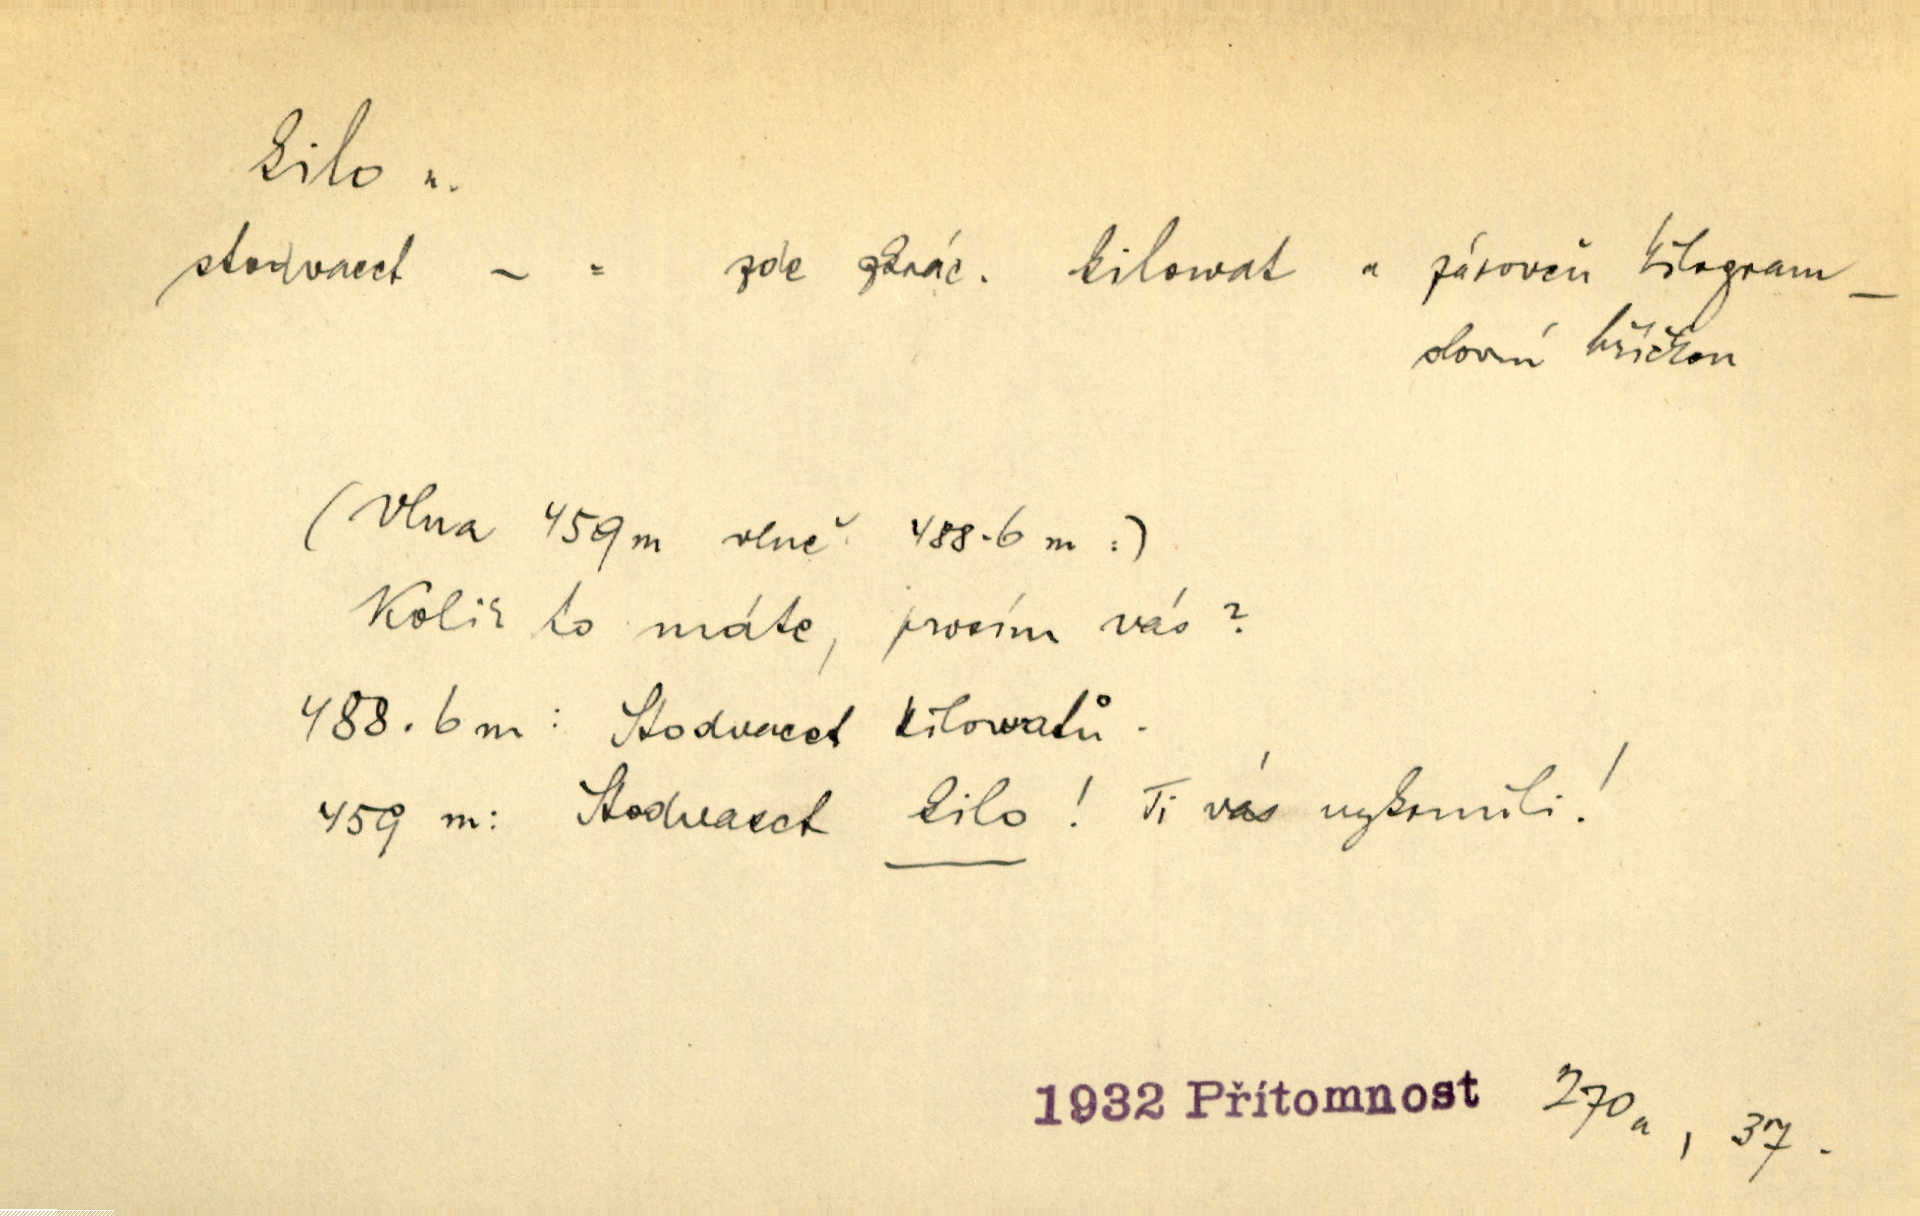 kilo n.
stodvacet – = zde zkrác. kilowat a zároveň kilogram –
slovní hříčkou
(Vlna 459 m vlně 488.6 m :)
Kolik to máte, prosím vás?
488.6 m: Stodvacet kilowatů.
459 m: Stodvacet kilo! Ti vás vykrmili!
1932 Přítomnost 270a, 37.